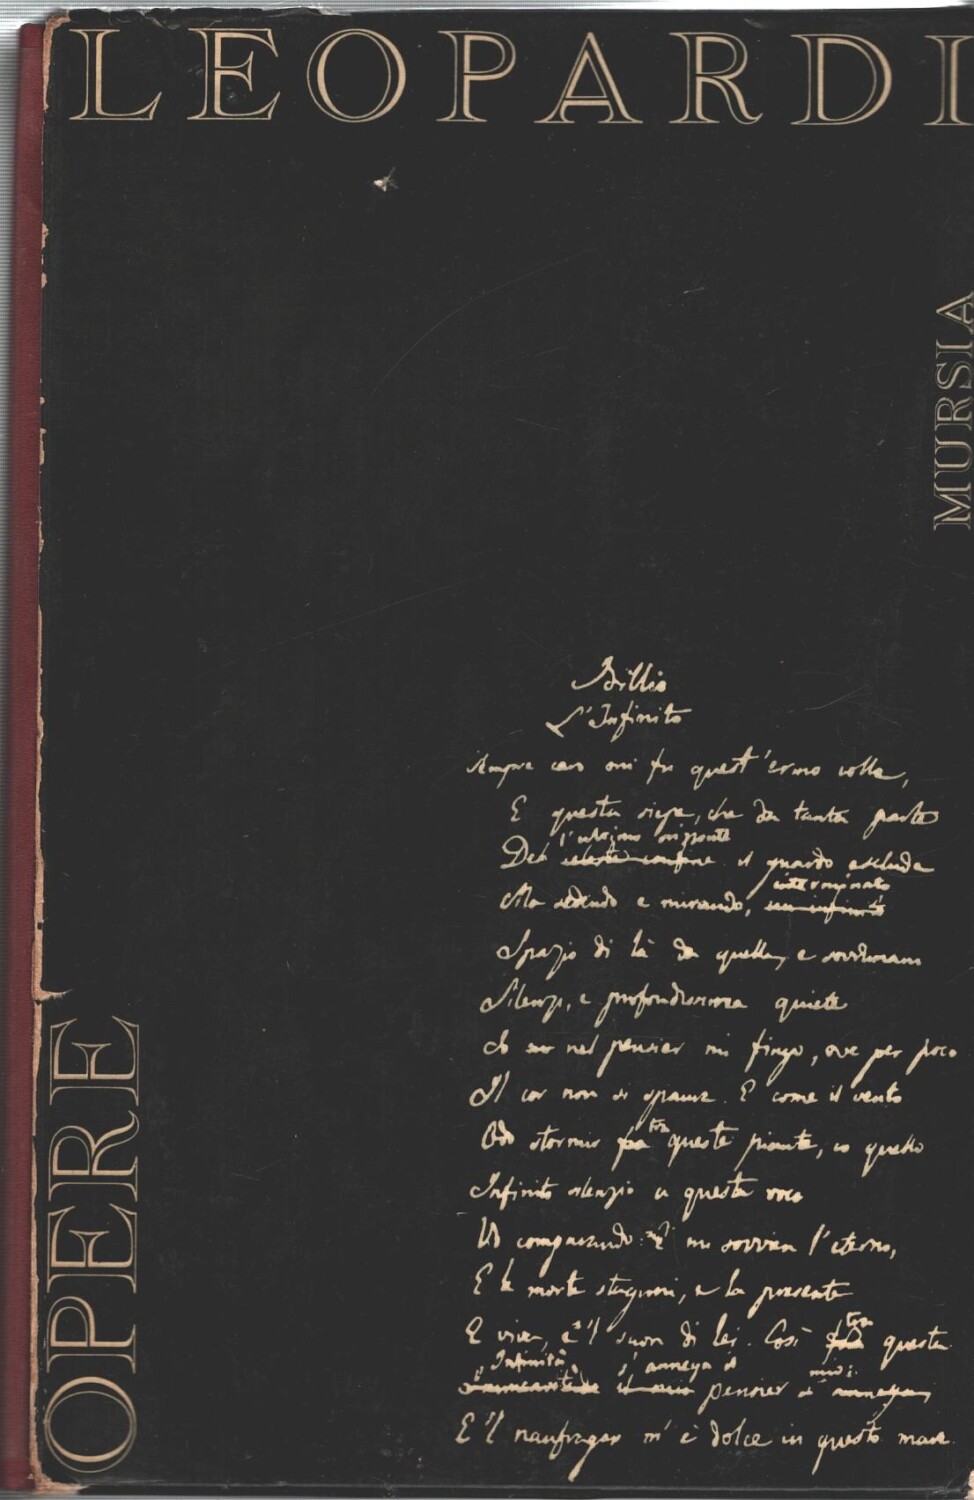 LEOPARDI
MURSIA
OPERE
Idillio
L'Infinito
Sempre caro mi fu quest'ermo colle,
E questa siepe, che da tanta parte
l'ultimo orizzonte
Del celeste confine il guardo esclude
interminato
Ma sedendo e mirando, un infinito
Spazio di là da quella, e sovrumani
Silenzi, e profondissima quiete
Io nel pensier mi fingo, ove per poco
Il cor non si spaura. E come il vento
tra
Odo stormir fra queste piante, io quello
Infinito silenzio a questa voce
Vo comparando: E mi sovvien l'eterno,
E le morte stagioni, e la presente
tra
E viva, e 'l suon di lei. Così fra questa
Infinità s'annega il mio:
pensier s'annega,
E 'l naufragar m'è dolce in questo mare.